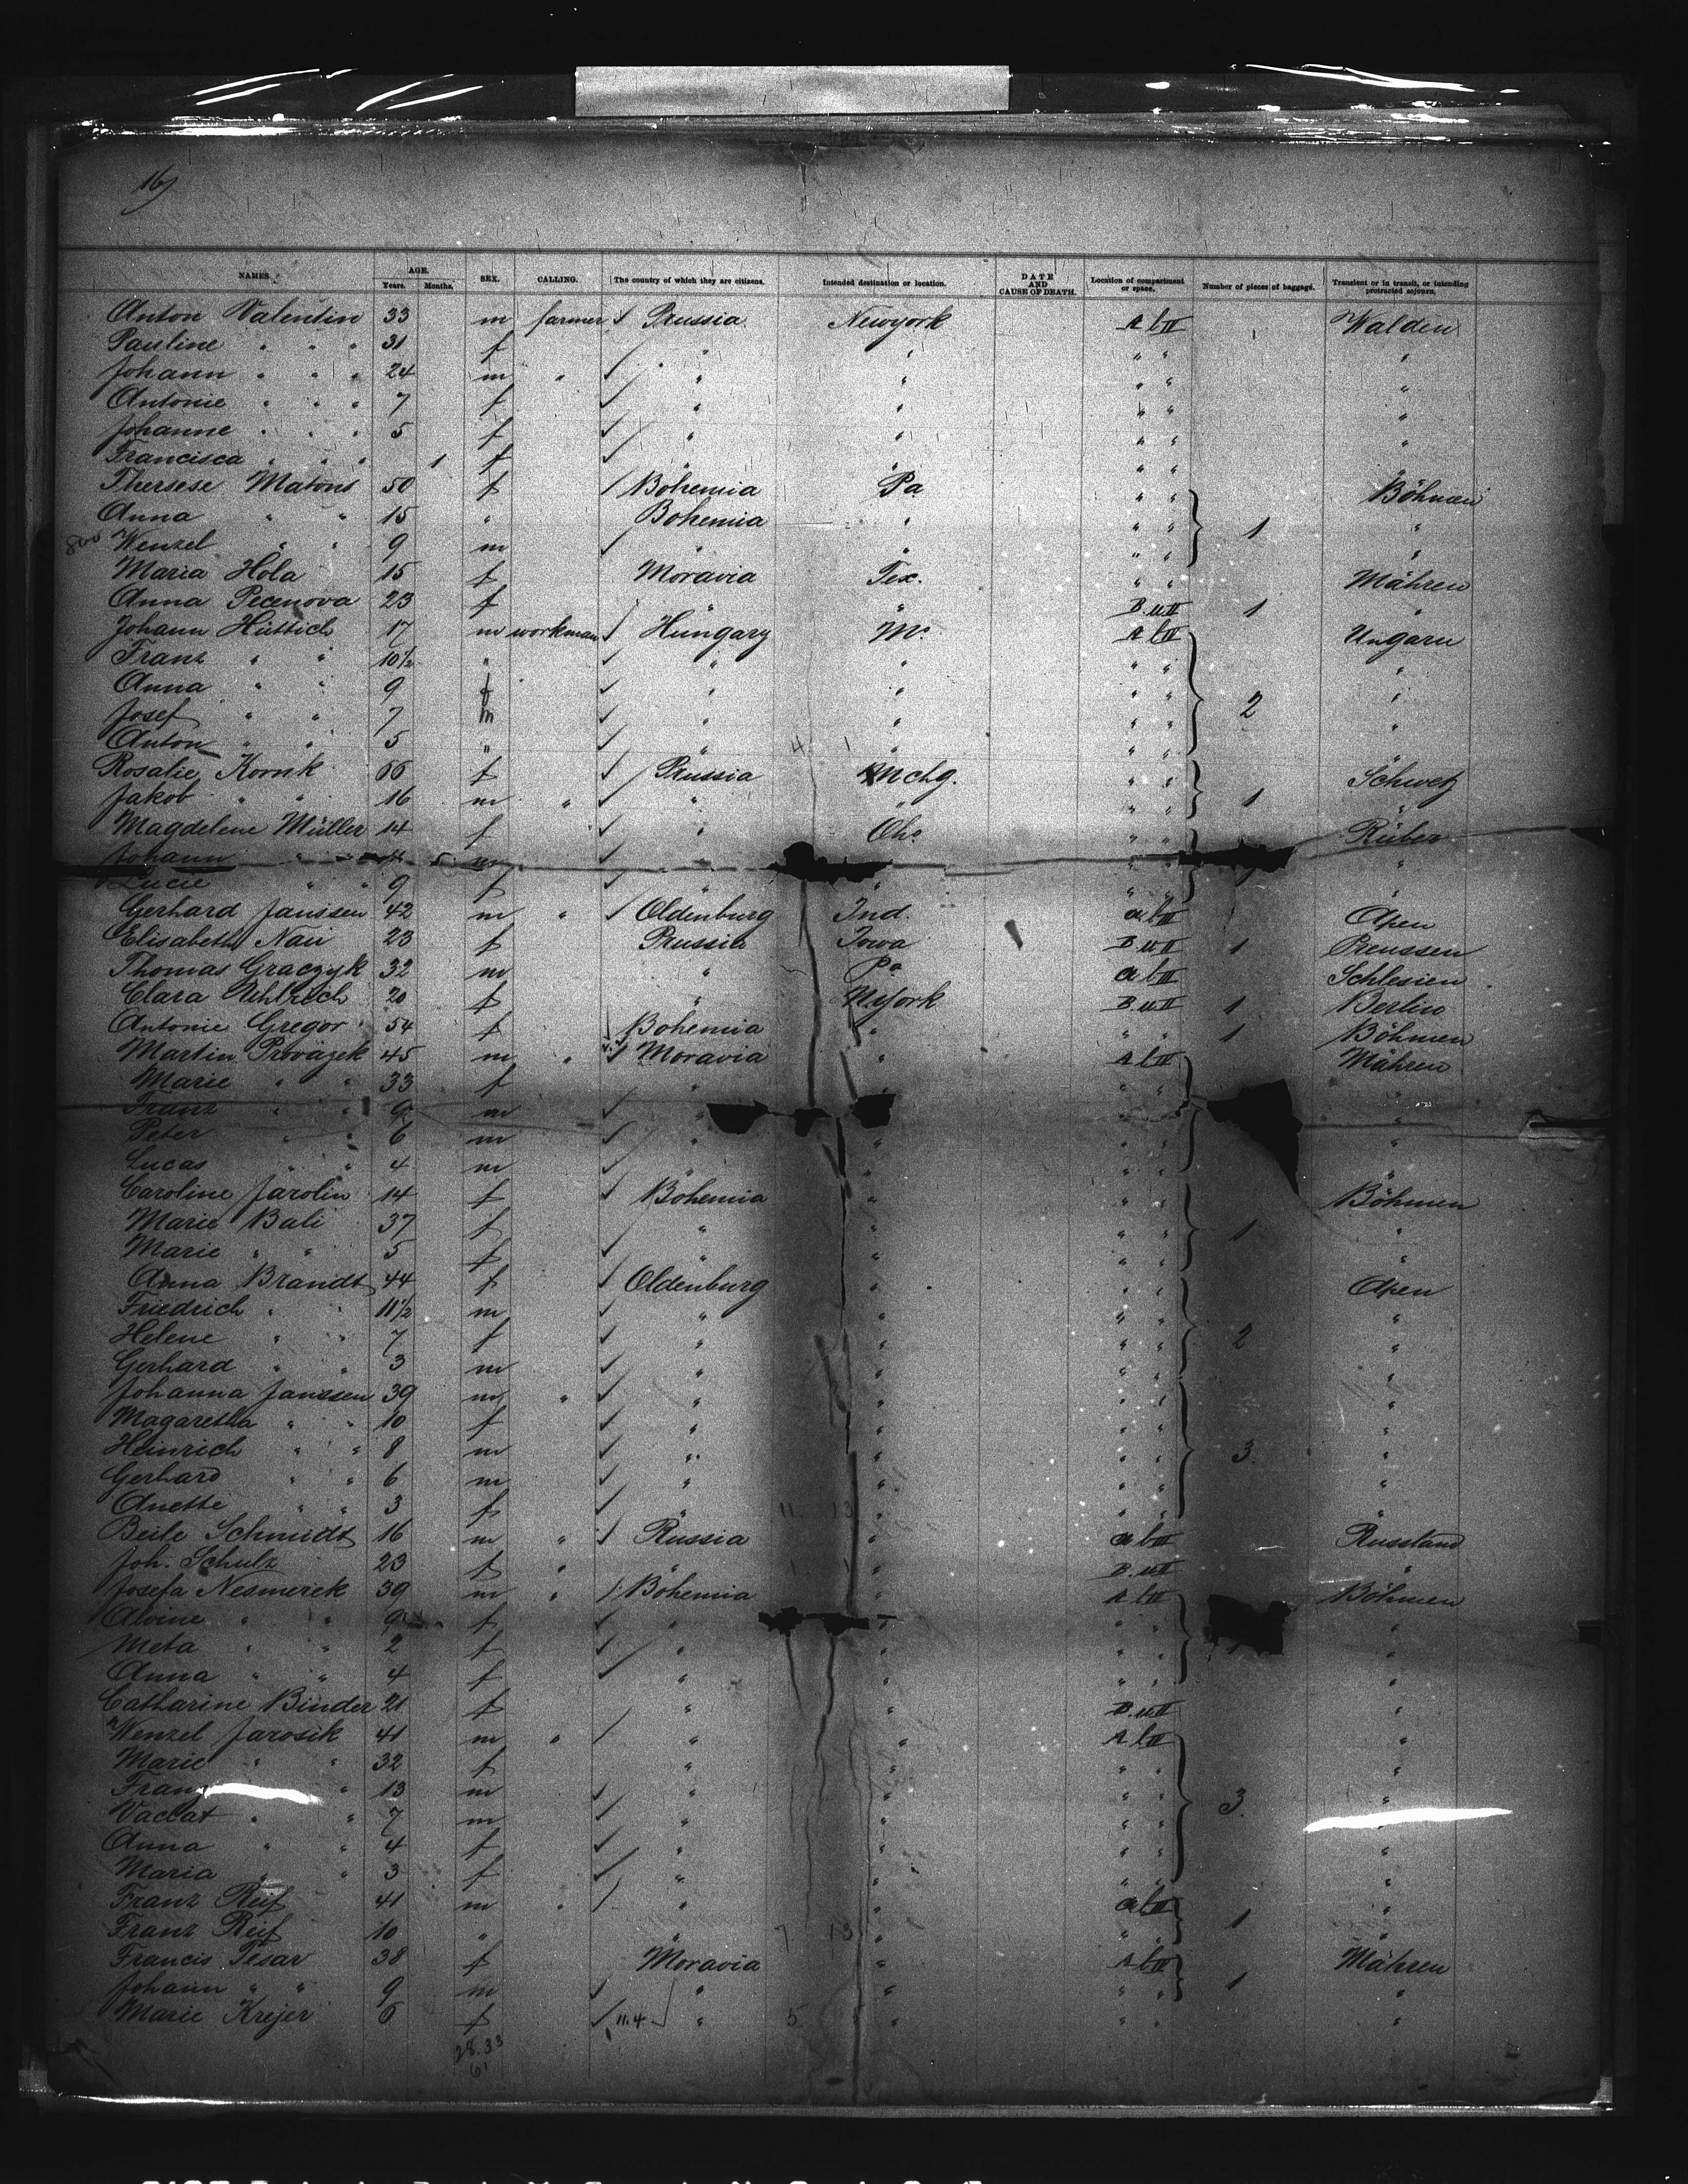 16)
NAMES AGE. Years. Months. SEX. CALLING. The country of which they are citizens. Intended destination or location. DATE AND CAUSE OF DEATH. Location of compartment or space. Number of pieces of baggage. Transient or in transit, or intending protracted sojourn.
Anton Valentin 33 m farmer Prussia Newyork A b II Walden
Pauline " " " 31 f " " " " "
Johann " " " 24 m " " " " " "
Antonie " " " 7 f " " " " "
Johanne " " " 5 f " " " " "
Francisca " " " 1 f " " " " "
Thersese Matous 50 f Bohemia Pa " " Böhmen
Anna " " 15 " Bohemia " " " 1 "
800 Wenzel " " 9 m " " " " "
Maria Hola 15 f Moravia Tex. " " Mähren
Anna Pecenova 23 f " " B. u II 1 "
Johann Hüttich 17 m workman Hungary M. A b II Ungarn
Franz " " 10½ " " " " " "
Anna " " 9 f " " " " "
Josef " " 7 m " " " " 2 "
Anton " " 5 " " 4 1 " " " "
Rosalie Kornk 66 f Prussia Mchg. " " Schwetz
Jakob " " 16 m " " " " " 1 "
Magdelene Müller 14 f " " Oh. " " Rüber
Johann " " 5 m " " "
Lucie " " 9 f " " " " "
Gerhard Janssen 42 m " Oldenburg Ind. a b II Apen
Elisabeth Nau 23 f Prussia Iowa B u II 1 Preussen
Thomas Graczyk 32 m " Pa a b II Schlesien
Clara 20 f " N.York B. u II 1 Berlin
Antonie Gregor 54 f Bohemia " " " 1 Böhmen
Martin Provázek 45 m " Moravia " A b II Mähren
Marie " " 33 f " " " "
Franz " " 9 m " " "
Peter " " 6 m " " " " "
Lucas " " 4 m " " " " "
Caroline Jarolin 14 f Bohemia " " " Böhmen
Marie Bali 37 f " " " " 1 "
Marie " " 5 f " " " " "
Anna Brandt 44 f Oldenburg " " " Apen
Friedrich " " 11½ m " " " " "
Helene " " 7 f " " " " 2 "
Gerhard " " 3 m " " " " "
Johanna Janssen 39 m " " " " " "
Magaretha " " 10 f " " " " "
Heinrich " " 8 m " " " " 3 "
Gerhard " " 6 m " " " " "
Anette " " 3 f " 11. 13 " " "
Beile Schmidt 16 m " Russia " a b II Russland
Joh. Schulz 23 f " " 1 1 " B. u II "
Josefa Nesmerek 39 m " Bohemia " A b II Böhmen
Alvine " " 9 f " " " " "
Meta " " 2 f " " " " "
Anna " " 4 f " " " " "
Catharine Binder 21 f " " B. u II "
Wenzel Jarosik 41 m " " " A b II "
Marie " " 32 f " " " " "
Franz " 13 m " " " " "
Vaclat " " 7 m " " " " 3.
Anna " " 4 f " " " " "
Maria " " 3 f " " " " "
Franz Reif 41 m " " " a b II "
Franz Reif 10 " " 7 13 " " " 1 "
Francis Tesar 38 f Moravia " A b II Mähren
Johann " " 9 m " " " " 1 "
Marie Krejer 6 f 11.4 " 5 " " " "
28.33
61